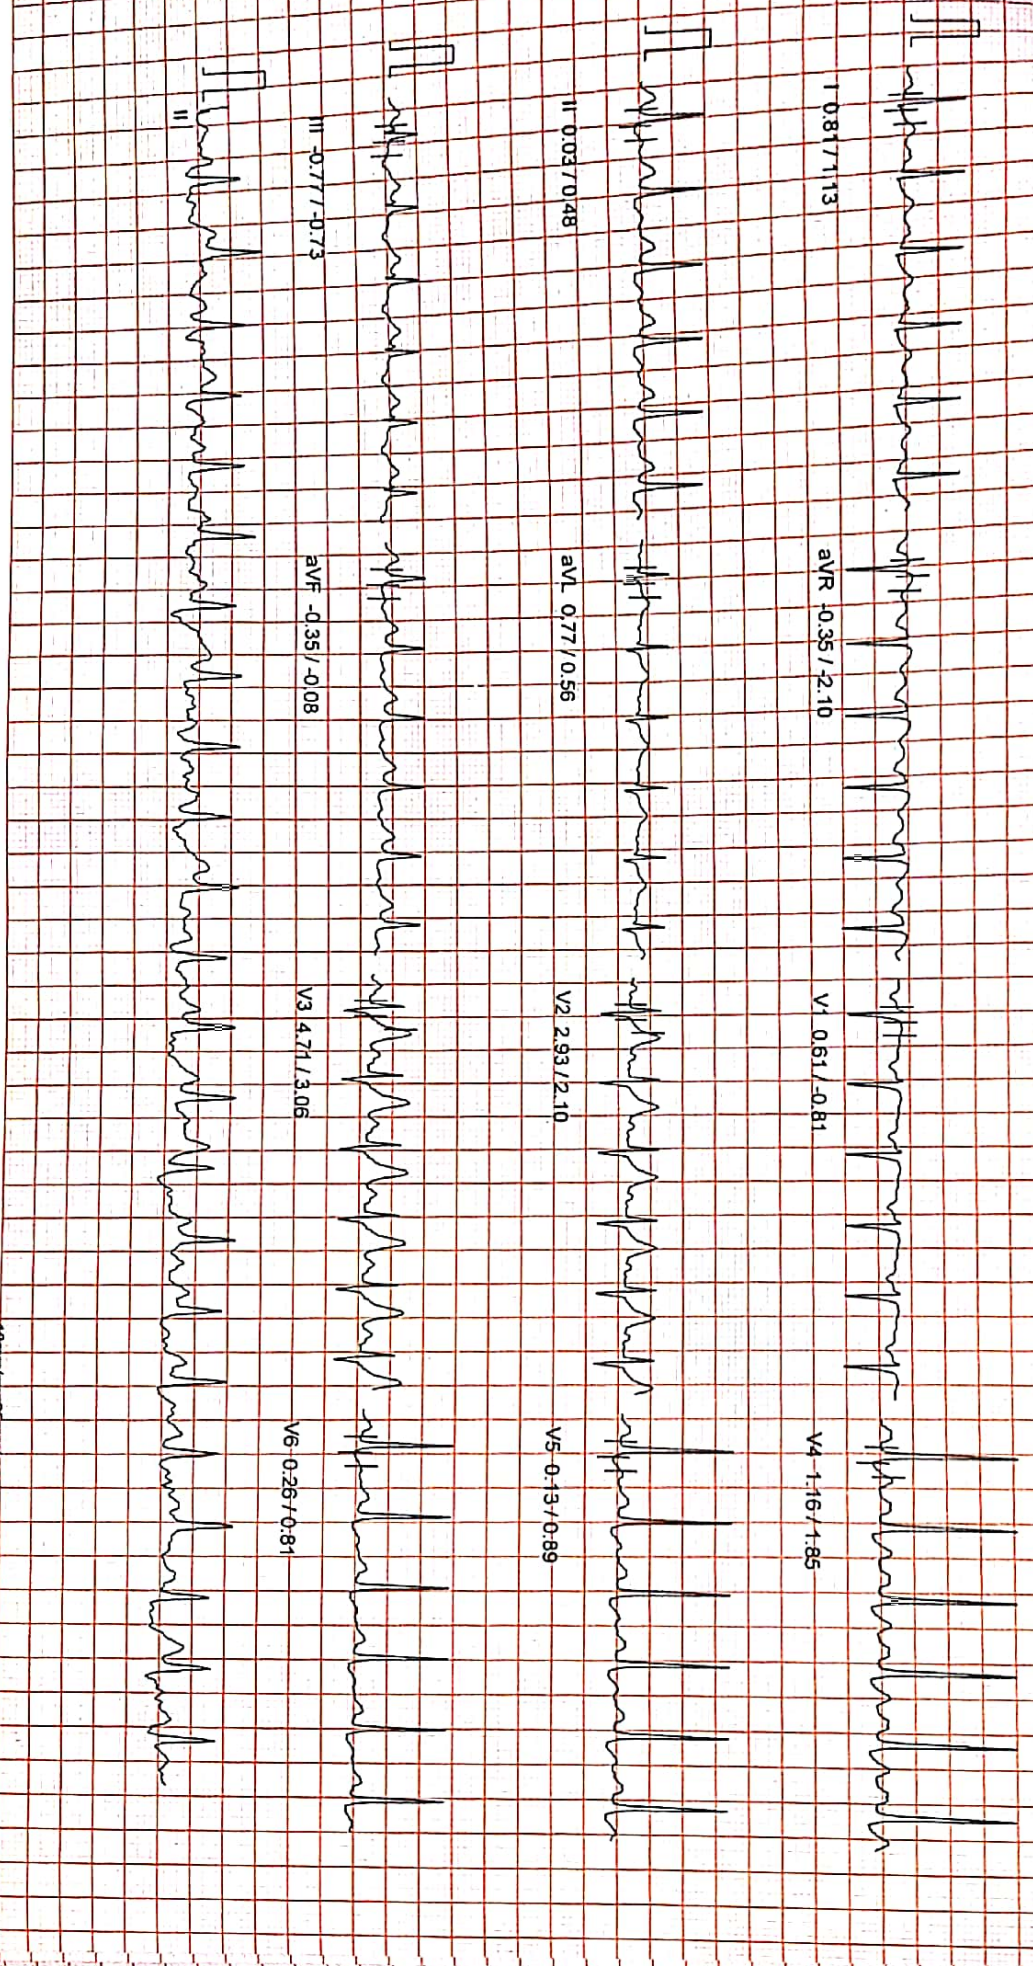 I 0.81 / 1.13
aVR -0.35 / -2.10
V1 0.61 / -0.81
V4 1.16 / 1.85
II 0.03 / 0.48
aVL 0.77 / 0.56
V2 2.93 / 2.10
V5 0.13 / 0.89
III -0.77 / -0.73
aVF -0.35 / -0.08
V3 4.71 / 3.06
V6 0.26 / 0.81
II